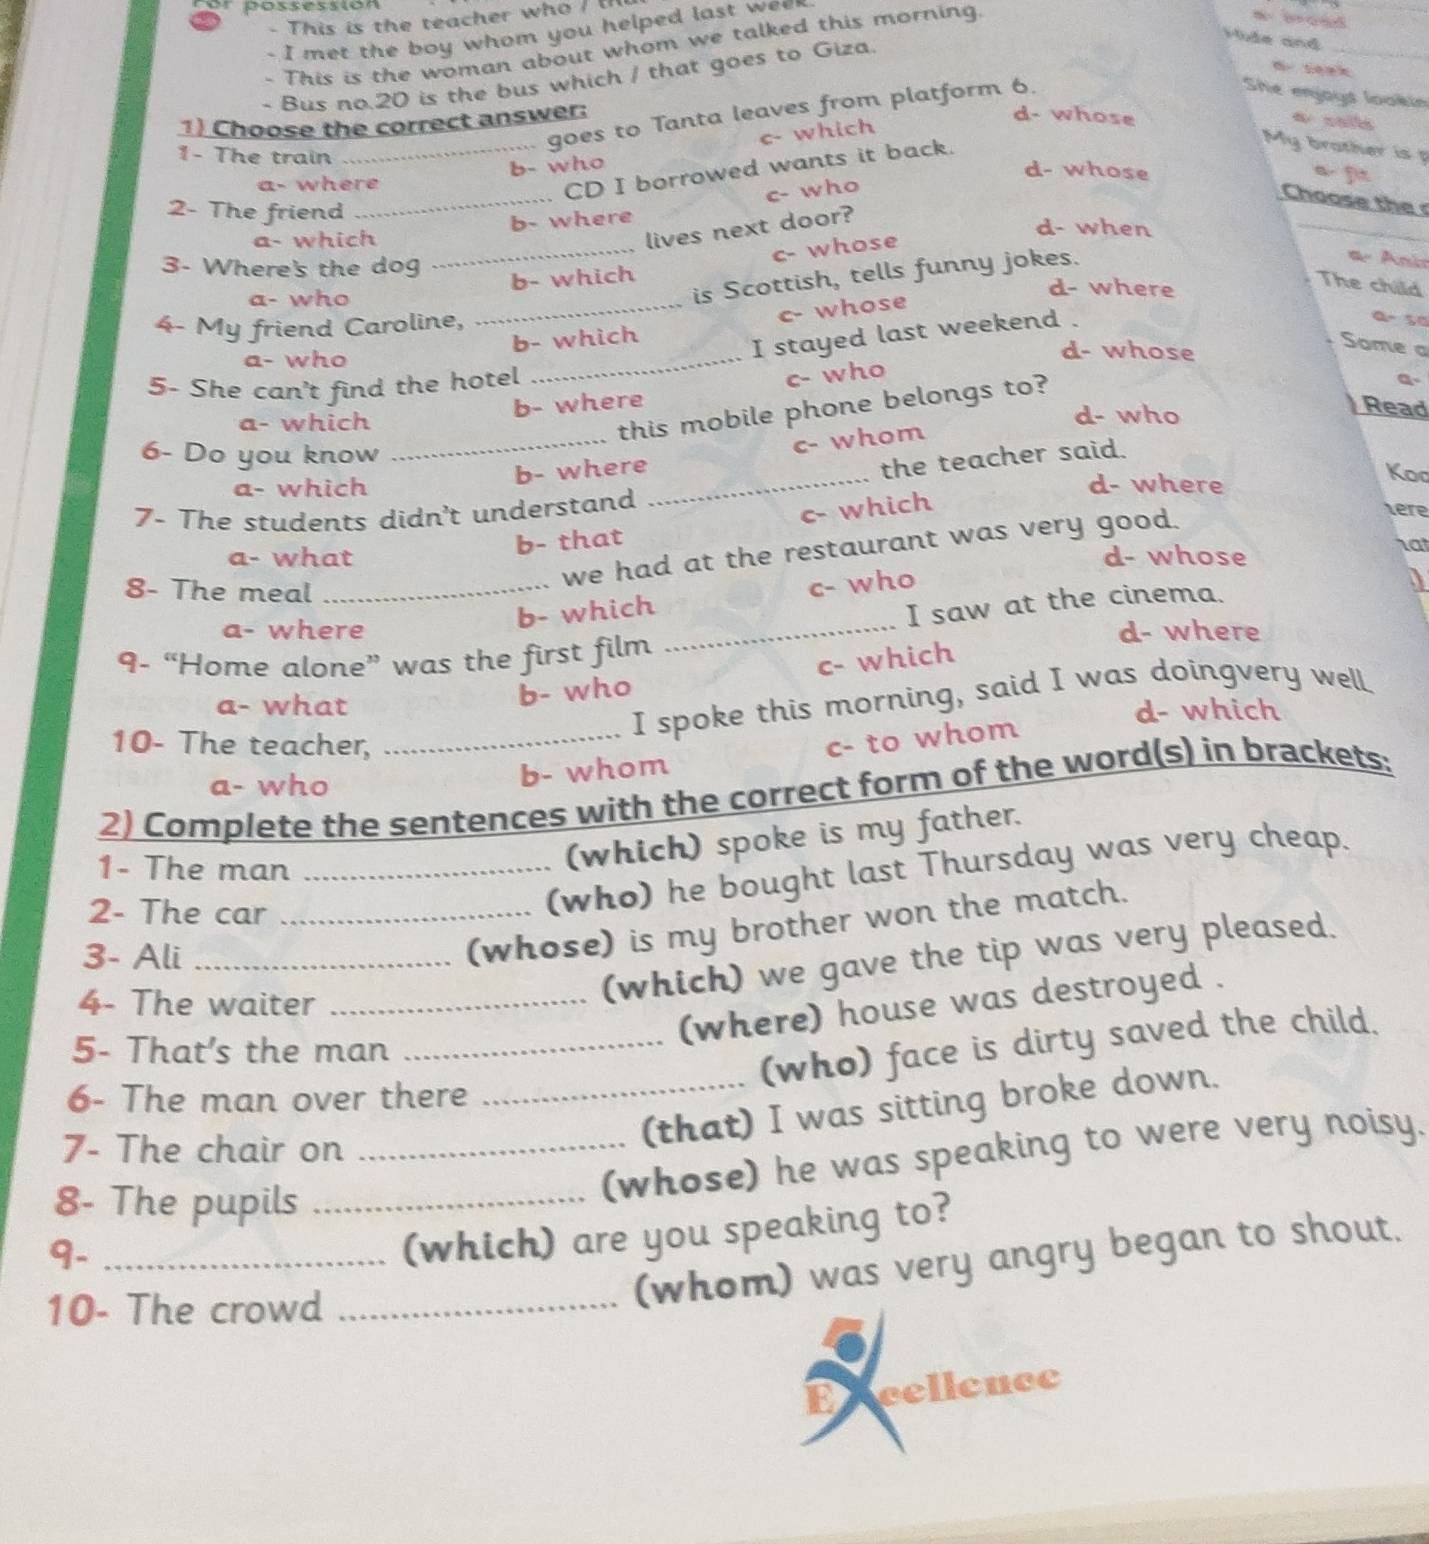 For possession
- This is the teacher who /
- I met the boy whom you helped last week.
- This is the woman about whom we talked this morning.
- Bus no.20 is the bus which / that goes to Giza.
1) Choose the correct answer:
1- The train ____ goes to Tanta leaves from platform 6.
a- where b- who c- which d- whose
2- The friend ____ CD I borrowed wants it back.
a- which b- where c- who d- whose
3- Where's the dog ____ lives next door?
a- who b- which c- whose d- when
4- My friend Caroline, ____ is Scottish, tells funny jokes.
a- who b- which c- whose d- where
5- She can't find the hotel ____ I stayed last weekend .
a- which b- where c- who d- whose
6- Do you know ____ this mobile phone belongs to?
a- which b- where c- whom d- who
7- The students didn't understand ____ the teacher said.
a- what b- that c- which d- where
8- The meal ____ we had at the restaurant was very good.
a- where b- which c- who d- whose
9- “Home alone” was the first film ____ I saw at the cinema.
a- what b- who c- which d- where
10- The teacher, ____ I spoke this morning, said I was doingvery well.
a- who b- whom c- to whom d- which
2) Complete the sentences with the correct form of the word(s) in brackets:
1- The man ____ (which) spoke is my father.
2- The car ____ (who) he bought last Thursday was very cheap.
3- Ali ____ (whose) is my brother won the match.
4- The waiter ____ (which) we gave the tip was very pleased.
5- That's the man ____ (where) house was destroyed .
6- The man over there ____ (who) face is dirty saved the child.
7- The chair on ____ (that) I was sitting broke down.
8- The pupils ____ (whose) he was speaking to were very noisy.
9- ____ (which) are you speaking to?
10- The crowd ____ (whom) was very angry began to shout.
Excellence
Hide and
a- seek
She enjoys lookin
My brother is
a- fit
Choose the
a- Ani
The child
a- so
Some a
a-
) Read
Koo